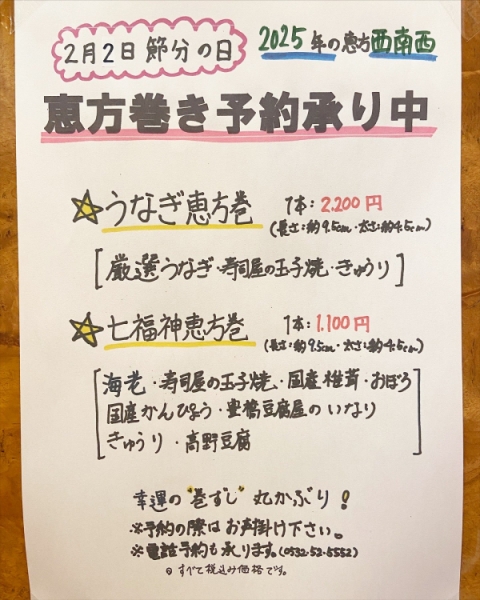 2月2日 節分の日
2025年の恵方西南西
恵方巻き予約承り中
☆うなぎ恵方巻 1本:2.200円
(長さ:約9.5cm・太さ:約4.5cm)
[厳選うなぎ・寿司屋の玉子焼・きゅうり]
☆七福神恵方巻 1本:1.100円
(長さ:約9.5cm・太さ:約4.5cm)
[海老・寿司屋の玉子焼・国産椎茸・おぼろ
国産かんぴょう・豊橋豆腐屋のいなり
きゅうり・高野豆腐]
幸運の"巻ずし"丸かぶり!
※予約の際はお声掛け下さい。
※電話予約も承ります。(0532-52-5552)
◎すべて税込み価格です。